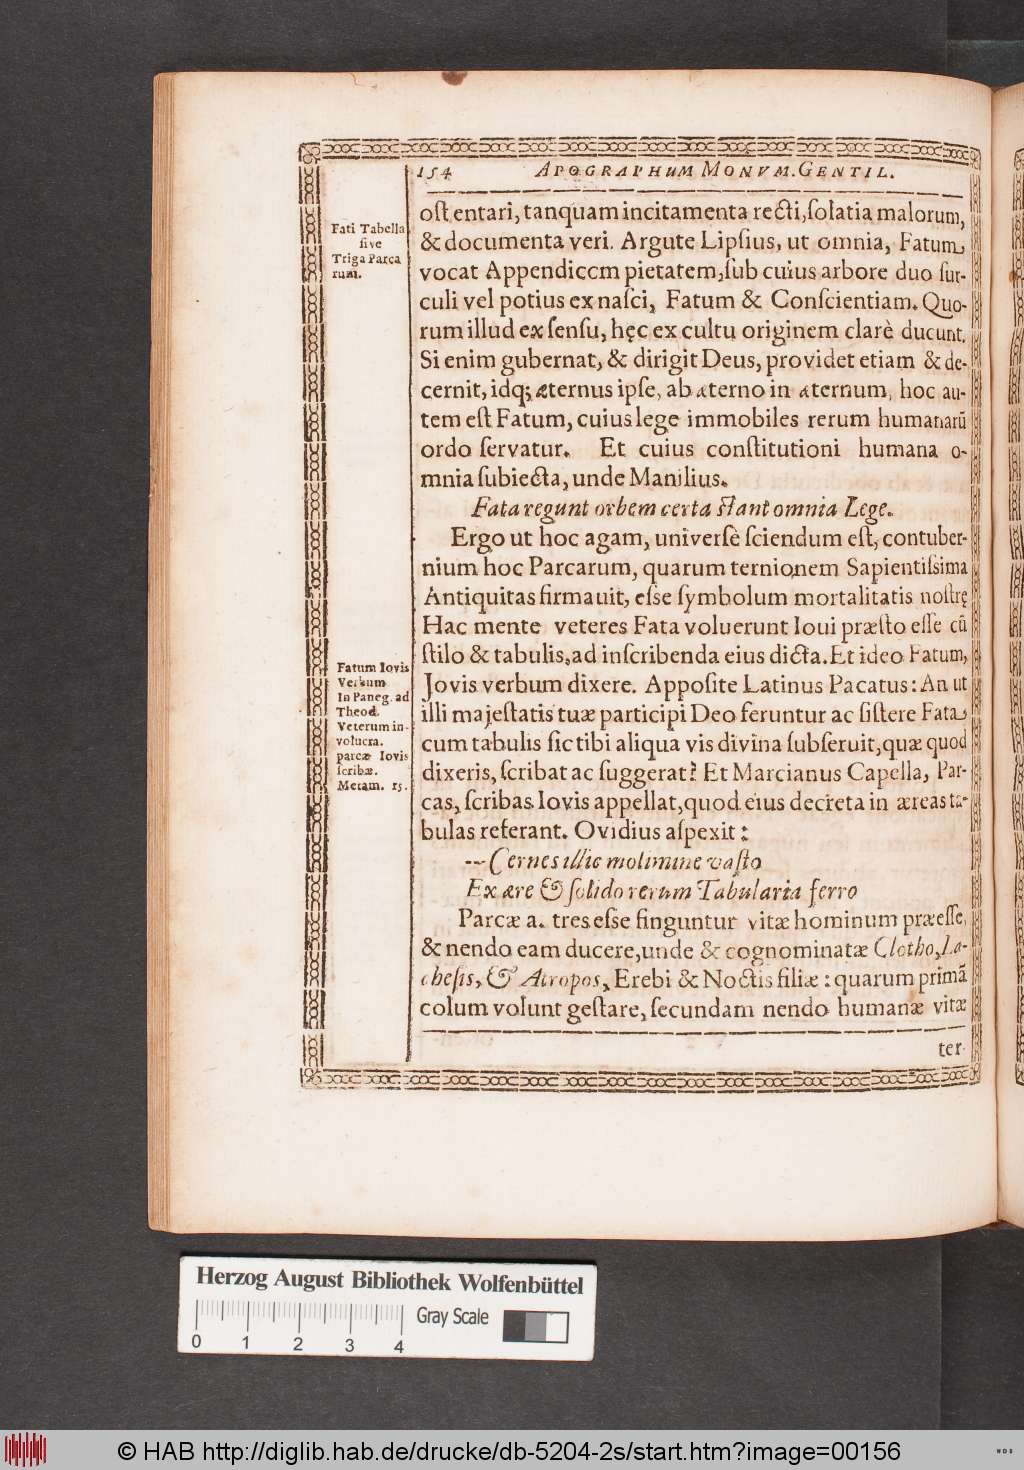 154 APOGRAPHUM MONVM. GENTIL.
Fati Tabella
sive
Triga Parca
rum.
ostentari, tanquam incitamenta recti, solatia malorum,
& documenta veri. Argute Lipsius, ut omnia, Fatum
vocat Appendicem pietatem, sub cuius arbore duo sur-
culi vel potius ex nasci, Fatum & Conscientiam. Quo-
rum illud ex sensu, hęc ex cultu originem clarè ducunt.
Si enim gubernat, & dirigit Deus, providet etiam & de-
cernit, idq; æternus ipse, ab æterno in æternum, hoc au-
tem est Fatum, cuius lege immobiles rerum humanarũ
ordo servatur. Et cuius constitutioni humana o-
mnia subiecta, unde Manilius.
Fata regunt orbem certa stant omnia Lege.
Ergo ut hoc agam, universè sciendum est, contuber-
nium hoc Parcarum, quarum ternionem Sapientissima
Antiquitas firmauit, esse symbolum mortalitatis nostrę
Hac mente veteres Fata voluerunt Ioui præsto esse cũ
stilo & tabulis, ad inscribenda eius dicta. Et ideo Fatum,
Jovis verbum dixere. Apposite Latinus Pacatus: An ut
illi majestatis tuæ participi Deo feruntur ac sistere Fata
cum tabulis sic tibi aliqua vis divina subseruit, quæ quod
dixeris, scribat ac suggerat? Et Marcianus Capella, Par-
cas, scribas Iovis appellat, quod eius decreta in æreas ta-
bulas referant. Ovidius aspexit:
-- Cernes illic molimine vasto
Ex ære & solido rerum Tabularia ferro
Parcæ a. tres esse finguntur vitæ hominum præesse,
& nendo eam ducere, unde & cognominatæ Clotho, La-
chesis, & Atropos, Erebi & Noctis filiæ: quarum primã
colum volunt gestare, secundam nendo humanæ vitæ
ter
Fatum Iovis
Verbum
In Paneg. ad
Theod.
Veterum in-
volucra.
parcæ Iovis
scribæ.
Metam. 15.
Herzog August Bibliothek Wolfenbüttel
Gray Scale
0 1 2 3 4
© HAB http://diglib.hab.de/drucke/db-5204-2s/start.htm?image=00156